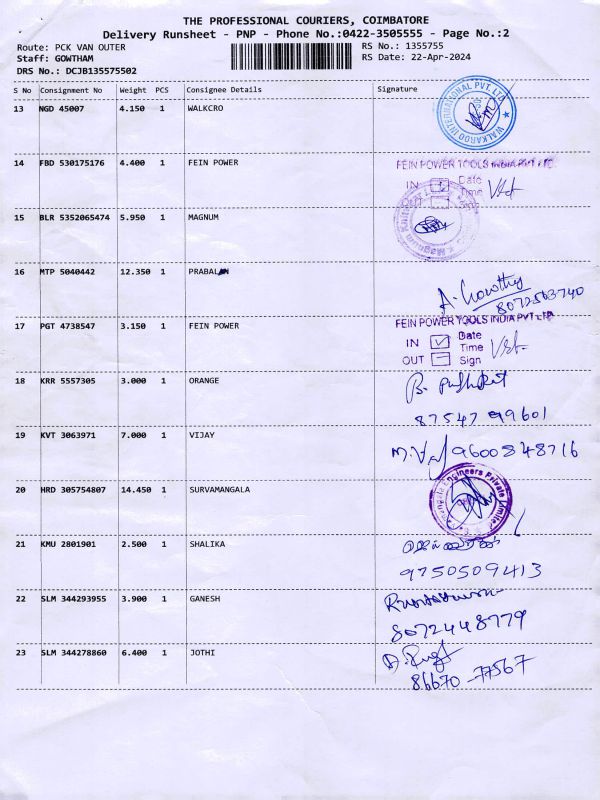 THE PROFESSIONAL COURIERS, COIMBATORE
Delivery Runsheet - PNP - Phone No.:0422-3505555 - Page No.:2
Route: PCK VAN OUTER RS No.: 1355755
Staff: GOWTHAM RS Date: 22-Apr-2024
DRS No.: DCJB135575502
S No Consignment No Weight PCS Consignee Details Signature
13 NGD 45007 4.150 1 WALKCRO
WALKAROO INTERNATIONAL PVT. LTD
14 FBD 530175176 4.400 1 FEIN POWER
FEIN POWER TOOLS INDIA PVT LTD
IN Date
Time
OUT Sign
15 BLR 5352065474 5.950 1 MAGNUM
Magnum
16 MTP 5040442 12.350 1 PRABALAN
A. Chowthy
8072563740
17 PGT 4738547 3.150 1 FEIN POWER
FEIN POWER TOOLS INDIA PVT LTD
IN Date
Time
OUT Sign
18 KRR 5557305 3.000 1 ORANGE
87547 99601
19 KVT 3063971 7.000 1 VIJAY
9600848716
20 HRD 305754807 14.450 1 SURVAMANGALA
Engineers Private Limited
21 KMU 2801901 2.500 1 SHALIKA
9750509413
22 SLM 344293955 3.900 1 GANESH
8072448779
23 SLM 344278860 6.400 1 JOTHI
86670-77567